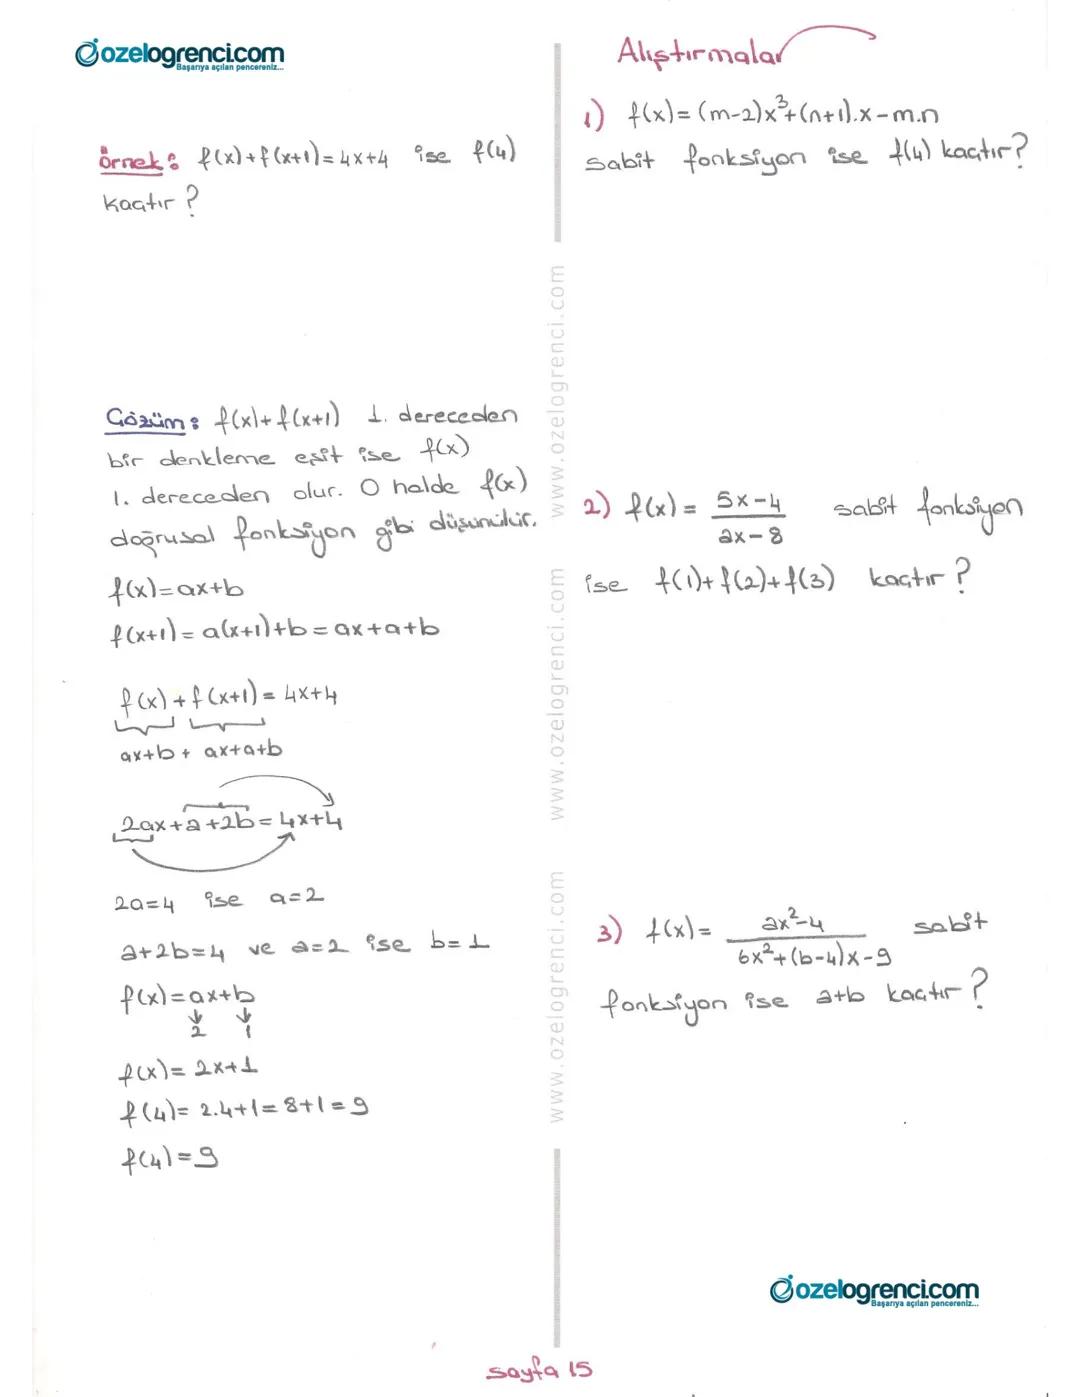 ozelogrenci.com
Başarıya açılan pencereniz...
örnek: f(x)+f(x+1)=4x+4 ise f(4)
kaçtır?
Çözüm: f(x)+f(x+1) 1. dereceden
bir denkleme eşit ise f(x)
1. dereceden olur. O halde f(x)
doğrusal fonksiyon gibi düşünülür.
f(x)=ax+b
f(x+1)=a(x+1)+b=ax+a+b
f(x)+f(x+1)=4x+4
ax+b+ ax+a+b
2ax+a+2b=4x+4
2a=4 ise a=2
a+2b=4 ve a=2 ise b=1
f(x)=ax+b
2 1
f(x)=2x+1
f(4)=2.4+1=8+1=9
f(4)=9
www.ozelogrenci.com www.ozelogrenci.com www.ozelogrenci.com
Alıştırmalar
1) f(x)=(m-2)x³+(n+1).x-m.n
sabit fonksiyon ise f(4) kaçtır?
2) f(x)= 5x-4 sabit fonksiyon
2x-8
ise f(1)+f(2)+f(3) kaçtır?
3) f(x)= ax²-4 sabit
6x²+(b-4)x-9
fonksiyon ise a+b kaçtır?
ozelogrenci.com
Başarıya açılan pencereniz...
sayfa 15